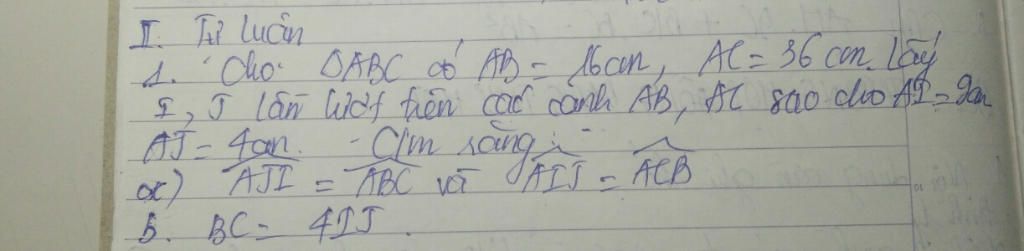 II. Tự luận
1. Cho ΔABC có AB = 16cm, AC = 36 cm. Lấy
I, J lần lượt trên các cạnh AB, AC sao cho AI = 9cm
AJ = 4cm. C/m rằng:
a) AJI = ABC và AIJ = ACB
b. BC = 4IJ.